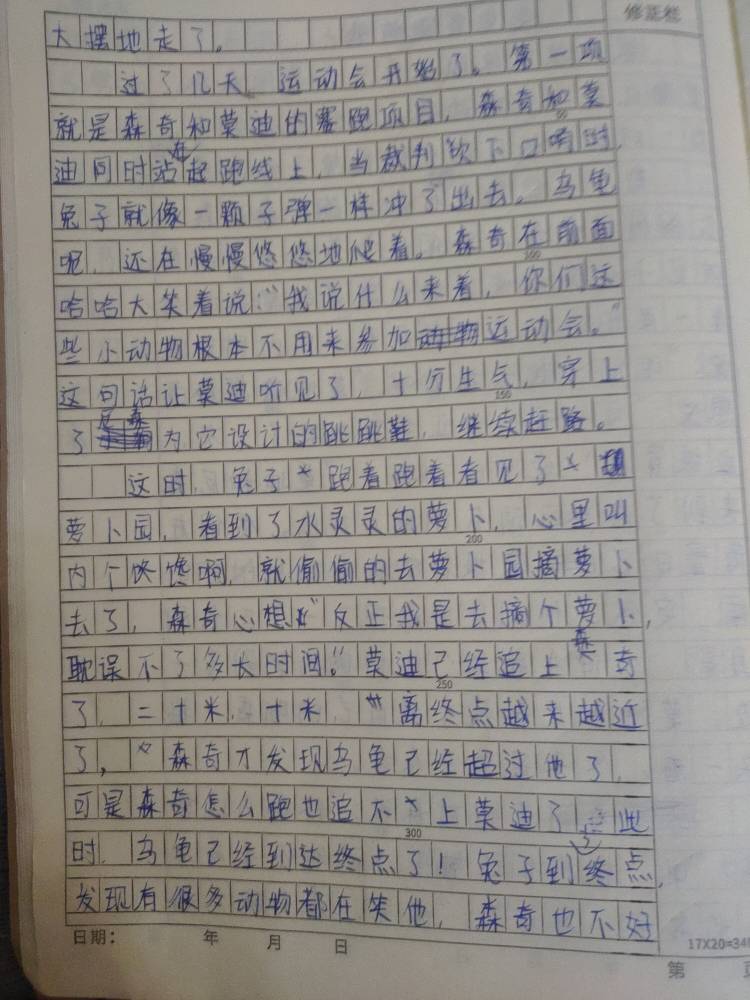 修正栏
大摆地走了。
过了几天,运动会开始了。第一项
就是森奇和莫迪的赛跑项目,森奇和莫
迪同时站在起跑线上,当裁判吹下口哨时,
兔子就像一颗子弹一样冲了出去。乌龟
呢,还在慢慢悠悠地爬着。森奇在前面
哈哈大笑着说:“我说什么来着,你们这
些小动物根本不用来参加运动会。”
这句话让莫迪听见了,十分生气,穿上
了尼森为它设计的跳跳鞋,继续赶路。
这时,兔子跑着跑着看见了
萝卜园,看到了水灵灵的萝卜,心里叫
内个馋馋啊,就偷偷的去萝卜园摘萝卜
去了,森奇心想:“反正我是去摘个萝卜,
耽误不了多大时间!”莫迪已经追上森奇
了,二十米,十米,离终点越来越近
了,森奇才发现乌龟已经超过他了,
可是森奇怎么跑也追不上莫迪了,此
时,乌龟已经到达终点了!兔子到了终点,
发现有很多动物都在笑他,森奇也不好
150
200
250
300
日期: 年 月 日
17X20=340
第 页